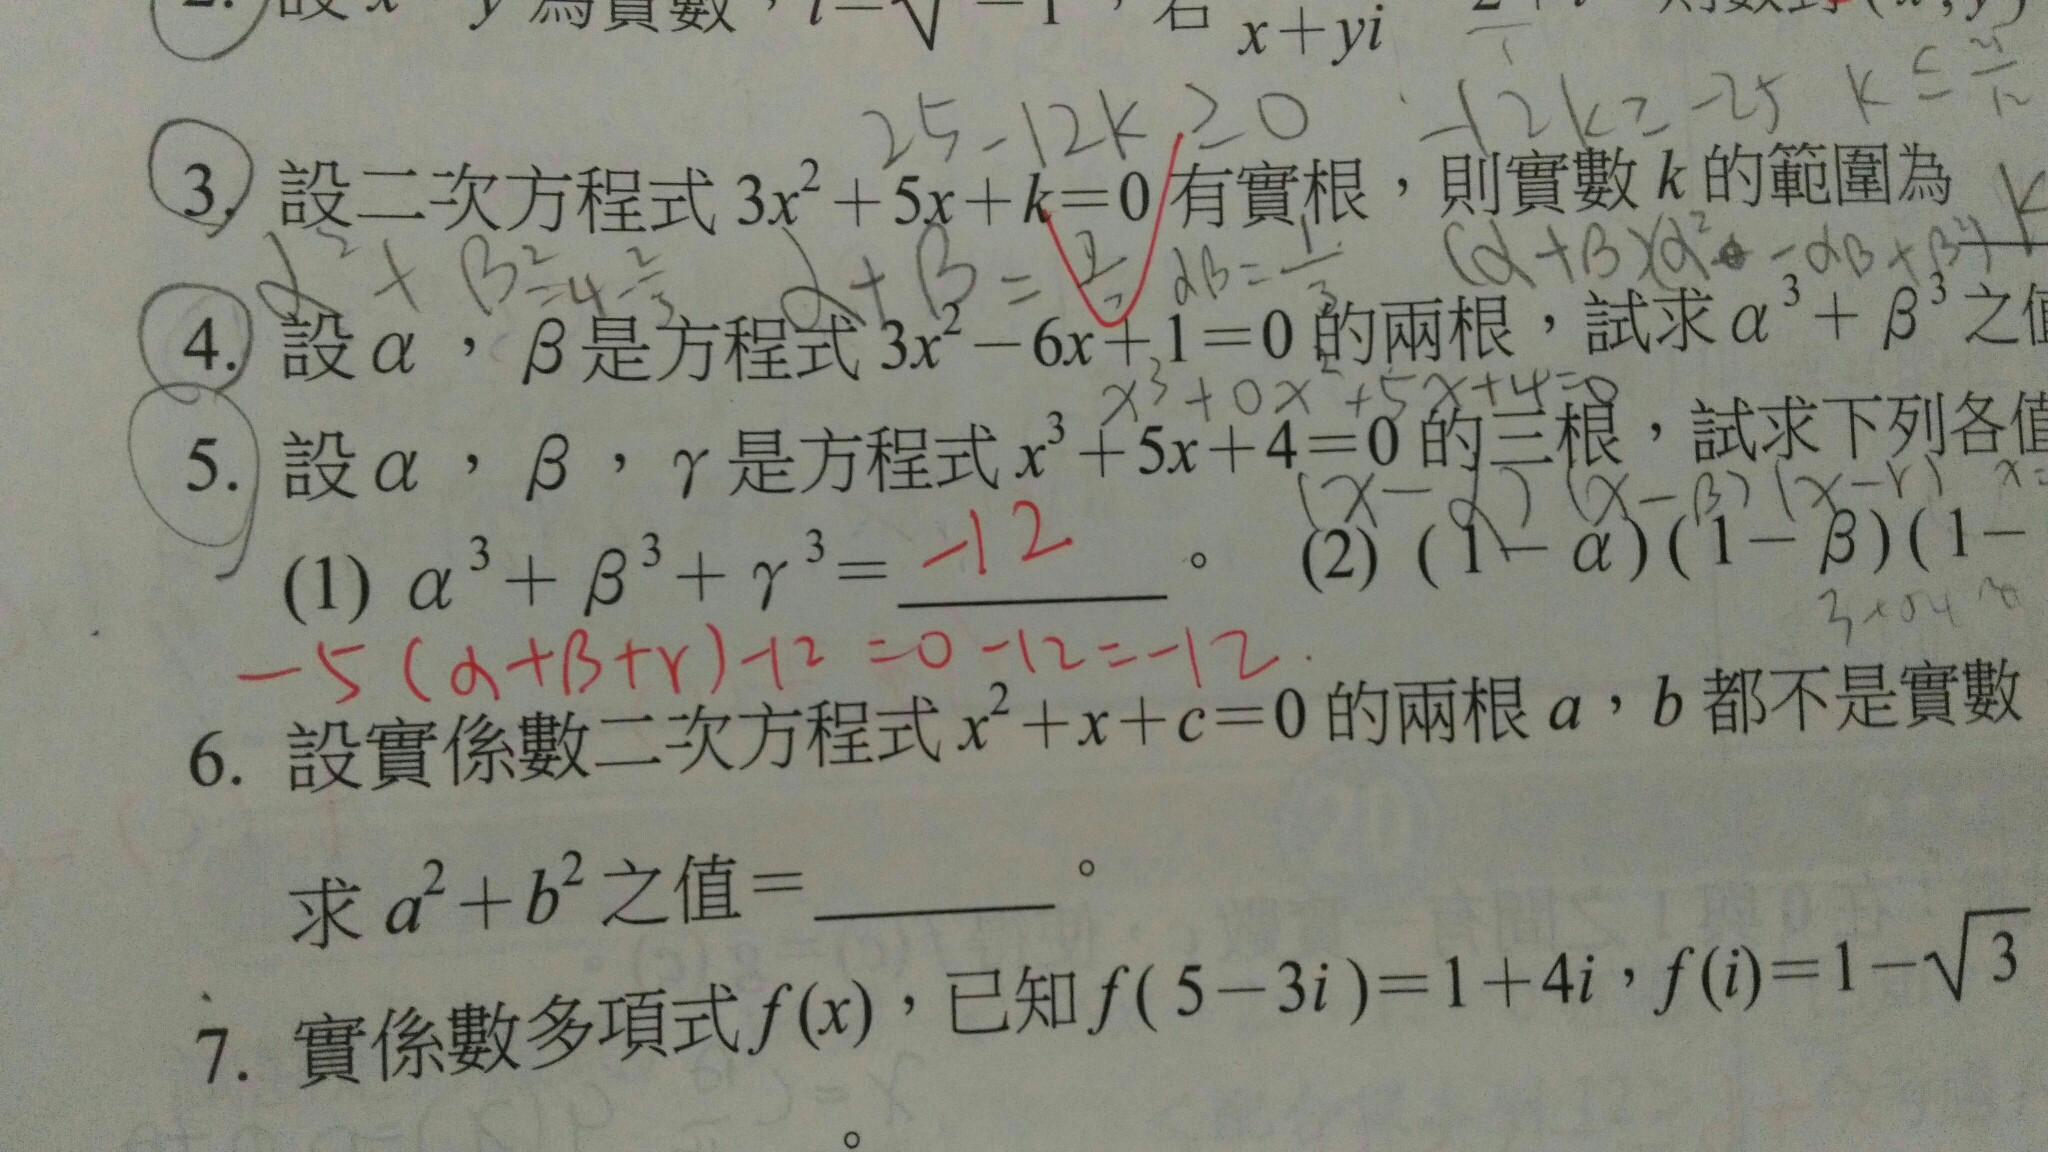 2. 設 x y 為實數，i=√-1，若 x+yi 2+i 則數對(x,y)
25-12k≥0 -12k≥-25 k≤25/12
3. 設二次方程式 3x²+5x+k=0 有實根，則實數 k 的範圍為 k
α²+β²=4-2/3 α+β=2 αβ=1/3 (α+β)(α²-αβ+β²)
4. 設 α，β 是方程式 3x²-6x+1=0 的兩根，試求 α³+β³ 之值
x³+0x²+5x+4=0
5. 設 α，β，γ 是方程式 x³+5x+4=0 的三根，試求下列各值
(x-α)(x-β)(x-r) x=
(1) α³+β³+γ³= -12 。 (2) (1-α)(1-β)(1-
-5(α+β+r)-12=0-12=-12.
6. 設實係數二次方程式 x²+x+c=0 的兩根 a，b 都不是實數
求 a²+b² 之值=______。
7. 實係數多項式 f(x)，已知 f(5-3i)=1+4i，f(i)=1-√3
。